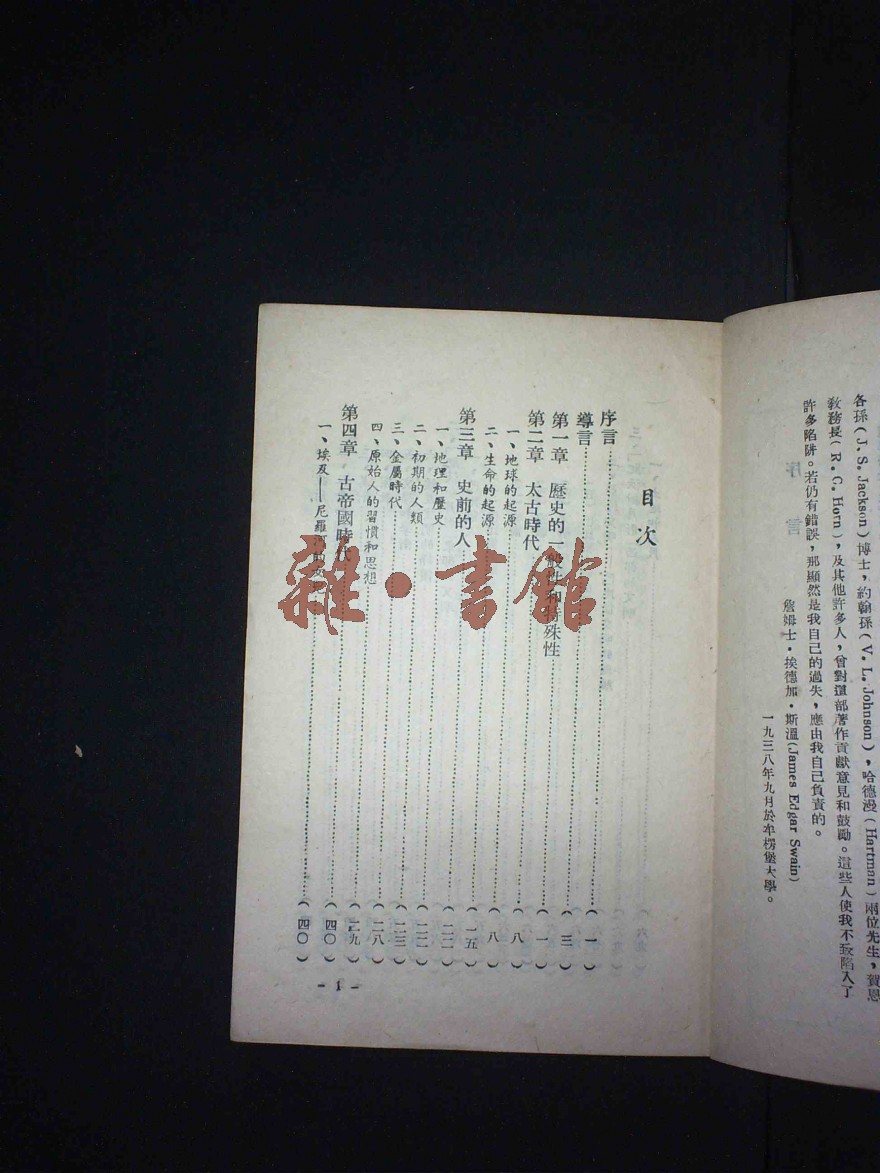 各孫(J. S. Jackson)博士，約翰孫(V. L. Johnson)，哈德漫(Hartman)兩位先生，賀恩
教務長(R. C. Horn)，及其他許多人，曾對這部著作貢獻意見和鼓勵。這些人使我不致陷入了
許多陷阱。若仍有錯誤，那顯然是我自己的過失，應由我自己負責的。
詹姆士·埃德加·斯溫(James Edgar Swain)
一九三八年九月於牟楞堡大學。
序言
目次
序言(一)
導言(三)
第一章 歷史的一般性和特殊性(一)
第二章 太古時代(八)
一、地球的起源(八)
二、生命的起源(一五)
第三章 史前的人(二二)
一、地理和歷史(二二)
二、初期的人類(二三)
三、金屬時代(二八)
四、原始人的習慣和思想(二九)
第四章 古帝國時代(四〇)
一、埃及——尼羅河的(四〇)
- 1 -
雜·書館